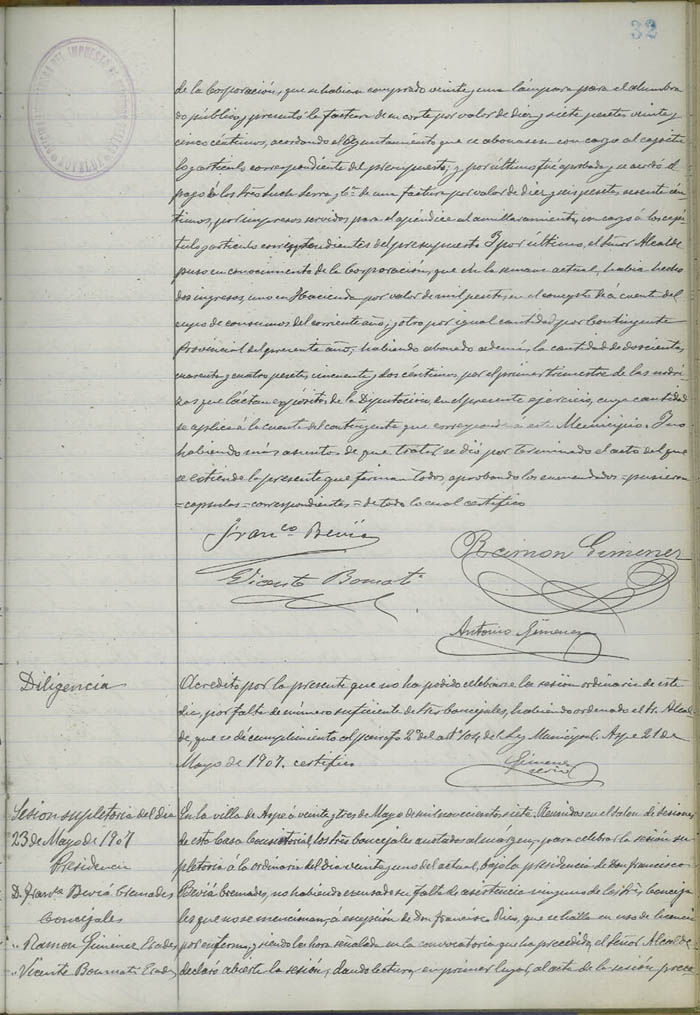 32
de la Corporación, que se habian comprado veinte y una lámpara para el alumbra
do público, y presentó la factura de su corte por valor de diez y siete pesetas veinte y
cinco céntimos, acordando el Ayuntamiento que se abonasen con cargo al capítu
lo y artículo correspondiente del presupuesto; y por último fué aprobada y se acordó el
pago á los Sres Such Serra y Cª de una factura por valor de diez y seis pesetas sesenta cén
timos, por impresos servidos para el apéndice al amillaramiento, con cargo á los capí
tulo y artículo correspondientes del presupuesto. Y por último, el Señor Alcalde
puso en conocimiento de la Corporación, que en la semana actual, habia hecho
dos ingresos, uno en Hacienda por valor de mil pesetas, en el concepto de á cuenta del
cupo de consumos del corriente año; y otro por igual cantidad por Contingente
Provincial del presente año, habiendo abonado además, la cantidad de doscientas
cuarenta y cuatro pesetas, cincuenta y dos céntimos, por el primer trimestre de las nodri
zas que lactan expósitos de la Diputación, en el presente ejercicio, cuya cantidad
se aplica á la cuenta del contingente que corresponde a este Municipio. Y no
habiendo más asuntos de que tratar se dió por terminado el acto del que
se extiende la presente que firman todos, aprobando los enmendados = pusieron
= capsulas = correspondientes = de todo lo cual certifico
Franco Beviá
Ramon Gimenez
Vicente Bomatí
Antonio Gimenez
Diligencia
Acredito por la presente que no ha podido celebrarse la sesión ordinaria de este
dia, por falta de número suficiente de Sres Concejales, habiendo ordenado el Sr. Alcal
de, que se dé cumplimiento al párrafo 2º del artº 104 de la Ley Municipal. Aspe 21 de
Mayo de 1907. certifico
Gimenez
Sesion supletoria del dia
23 de Mayo de 1907
Presidencia
D. Franco Beviá Cremades
Concejales
" Ramon Gimenez
" Vicente Boumati
En la villa de Aspe á veinte y tres de Mayo de mil novecientos siete. Reunidos en el Salon de Sesiones
de esta Casa Consistorial, los Sres Concejales anotados al márgen, para celebrar la sesión su
pletoria á la ordinaria del dia veinte y uno del actual, bajo la presidencia de Don Francisco
Beviá Cremades, no habiendo escusado su falta de asistencia ninguno de los Sres Conceja
les que no se mencionan, á escepción de Don Francisco Rico, que se halla en uso de licencia
por enfermo, y siendo la hora señalada en la convocatoria que ha precedido, el Señor Alcalde
declaró abierta la sesión, dando lectura, en primer lugar, al acta de la sesión prece-